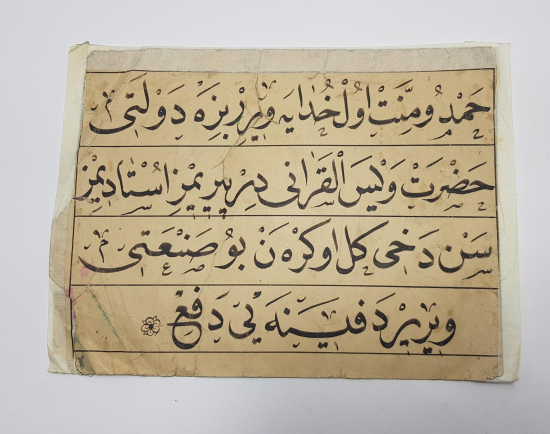 حَمْدُ و مِنَّتْ اوُلْ خُدَايَه وِيرِرْ بِزَه دَوْلَتِى
حَضْرَتْ وَيْسَ الْقَرَانِى دِرْ پِيرِيمْزِ اسْتَادِيمْزِ
سَنْ دَخِى كَلْ اوكْرَه نْ بُو صَنْعَتِى
وِيرِيرْ دَفِينَه يِى دَفْعِ